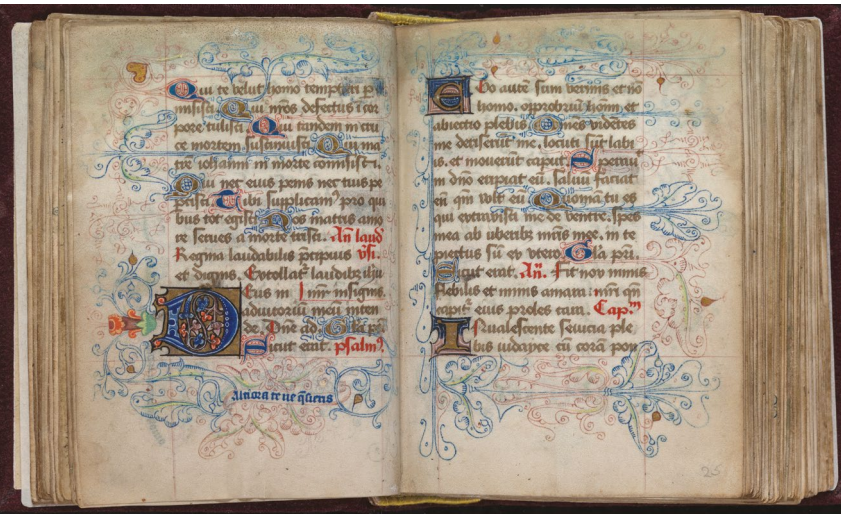 Qui te velut homo temptari p
misisti Qui nr̄os defectus ī cor
pore tulisti Qui tandem in cru
ce mortem sustinuisti Qui ma
tre iohanni in morte comisisti.
Qui nec eius penis nec tuis pe
percisti Tibi supplicamꝰ pro qui
bus tot egisti Nos matris amo
re serves a morte tristi. An̄ laud
Regina laudabilis p̄cipuus v̄si.
et dignus. Extollat̄ laudibꝫ iliu
Deus in
adiutoriū meū inten
de. Dn̄e ad Glīa pr̄i
Sicut erat. psalmꝰ.
Ego autē sum vermis et nō
homo. opprobriū hoīm et
abiectio plebis Omnes videtes
me deriserūt me. locuti sūt labi
is. et moverūt caput Speravi
in dn̄o eripiat eū. salvū faciat
eū qm̄ vult eū Quoniā tu es
qui extraxisti me de ventre. spes
mea ab uberibꝫ mr̄is mee. in te
proiectus sū ex utero Glīa pr̄i.
Sicut erat. An̄. Fit nov nimis
flebilis et nimis amara: nim̄ qm̄
capit̄ eius proles cara. Cap.m
Invalescente sevicia ple
bis iudayce cū corā pon
25